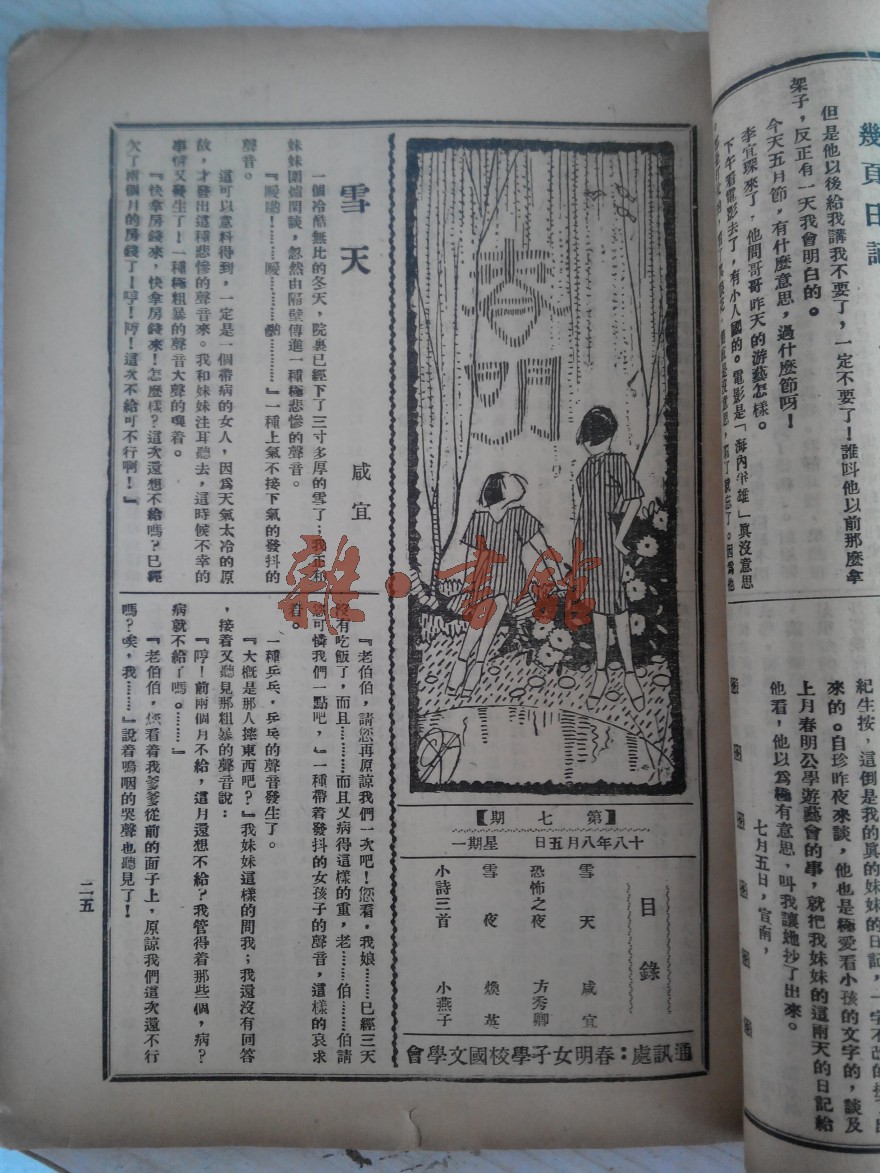 幾頁日記
但是他以後給我講我不要了，一定不要了！誰叫他以前那麼拿
架子，反正有一天我會明白的。
今天五月節，有什麼意思，過什麼節呀！
李宜琛來了，他問哥哥昨天的游藝怎樣。
下午看電影去了，有小人國的。電影是「海內
雄」眞沒意思
紀生按，這倒是我的真的妹妹的日記，一字不改的
來的。自珍昨夜來談，他也是極愛看小孩的文字的，談及
上月春明公學遊藝會的事，就把我妹妹的這兩天的日記給
他看，他以爲極有意思，叫我讓她抄了出來。
七月五日，宣南，
春明
【第七期】
十八年八月五日　星期一
目錄
雪天　咸宜
恐怖之夜　方秀卿
雪夜　煥英
小詩三首　小燕子
通訊處：春明女子學校國文學會
雪天
咸宜
一個冷酷無比的冬天，院裏已經下了三寸多厚的雪了；我正和
妹妹圍爐閒談，忽然由隔壁傳進一種極悲慘的聲音。
『噯喲！……噯…………喲…………』一種上氣不接下氣的發抖的
聲音。
這可以意料得到，一定是一個帶病的女人，因爲天氣太冷的原
故，才發出這種悲慘的聲音來。我和妹妹注耳聽去，這時候不幸的
事情又發生了！一種極粗暴的聲音大聲的嘆着。
『快拿房錢來，快拿房錢來！怎麼樣？這次還想不給嗎？已經
欠了兩個月的房錢了！哼！哼！這次不給可不行啊！』
『老伯伯，請您再原諒我們一次吧！您看，我娘……已經三天
沒有吃飯了，而且…………而且又病得這樣的重，老……伯……伯請
您可憐我們一點吧，』一種帶着發抖的女孩子的聲音，這樣的哀求
着。
一種乒乓，乒乓的聲音發生了。
『大概是那人摔東西吧？』我妹妹這樣的問我；我還沒有回答
，接着又聽見那粗暴的聲音說：
『哼！前兩個月不給，這月還想不給？我管得着那些個，病？
病就不給了嗎。………』
『老伯伯，您看着我爹爹從前的面子上，原諒我們這次還不行
嗎？唉，我………』說着嗚咽的哭聲也聽見了！
二五
雜·書館